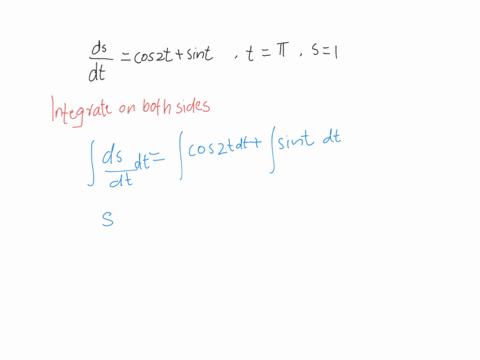 ds/dt = cos2t + sint . t = π . s = 1
Integrate on both sides
∫ ds/dt dt = ∫ cos2t dt + ∫ sint dt
S